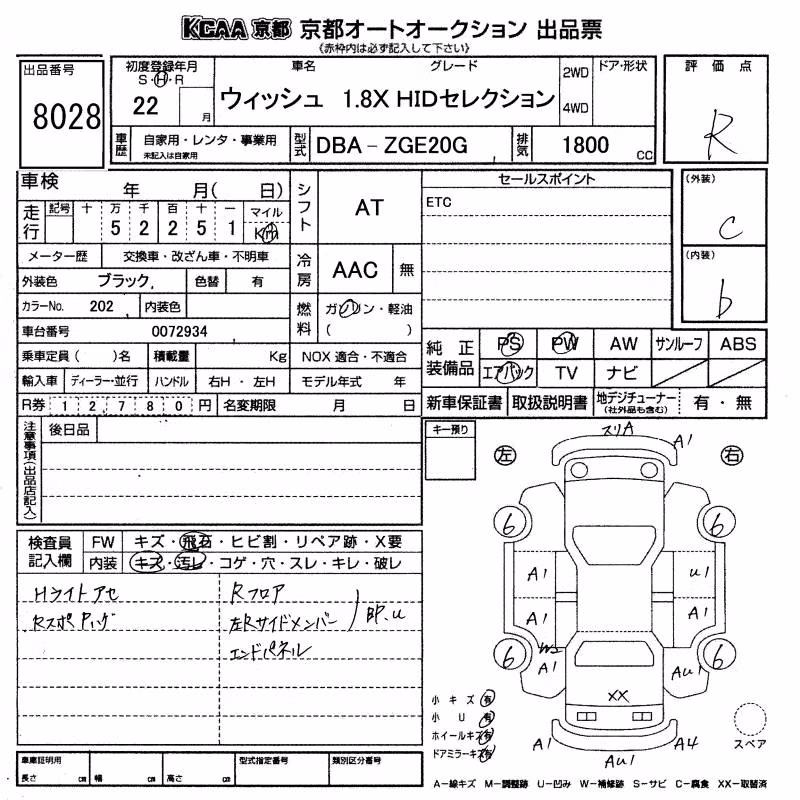 KCAA 京都 京都オートオークション 出品票
《赤枠内は必ず記入して下さい》
出品番号
8028
初度登録年月
S・H・R
22 月
車名 グレード
ウィッシュ 1.8X HIDセレクション
2WD
4WD
ドア・形状
評価点
R
車歴
自家用・レンタ・事業用
未記入は自家用
型式
DBA－ZGE20G
排気
1800 CC
車検 年 月( 日)
走行
記号 十 万 千 百 十 一 マイル
5 2 2 5 1 Km
メーター歴 交換車・改ざん車・不明車
外装色 ブラック, 色替 有
カラーNo. 202 内装色
車台番号 0072934
乗車定員( )名 積載量 Kg
輸入車 ディーラー・並行 ハンドル 右H・左H
R券 1 2,7 8 0 円 名変期限 月 日
シフト
AT
冷房
AAC 無
燃料
ガソリン・軽油
( )
NOX 適合・不適合
モデル年式 年
セールスポイント
ETC
(外装)
C
(内装)
b
純正装備品
PS PW AW サンルーフ ABS
エアバック TV ナビ
新車保証書 取扱説明書 地デジチューナー(社外品も含む) 有・無
注意事項(出品店記入)
後日品
キー預り
検査員記入欄
FW キズ・飛石・ヒビ割・リペア跡・X要
内装 キズ・汚レ・コゲ・穴・スレ・キレ・破レ
Hライトアセ
Rフロア
左Rサイドメンバー
エンドパネル
左 右
A1
6 6
A1 U1
A1 A1
W2
A1 AU1
6 6
XX
A1 AU1 A4
小キズ 有
小U 有
ホイールキズ 有
ドアミラーキズ 有
スペア
車庫証明用
長さ cm 幅 cm 高さ cm
型式指定番号
類別区分番号
A―線キズ M―調整跡 U―凹み W―補修跡 S―サビ C―腐食 XX―取替済